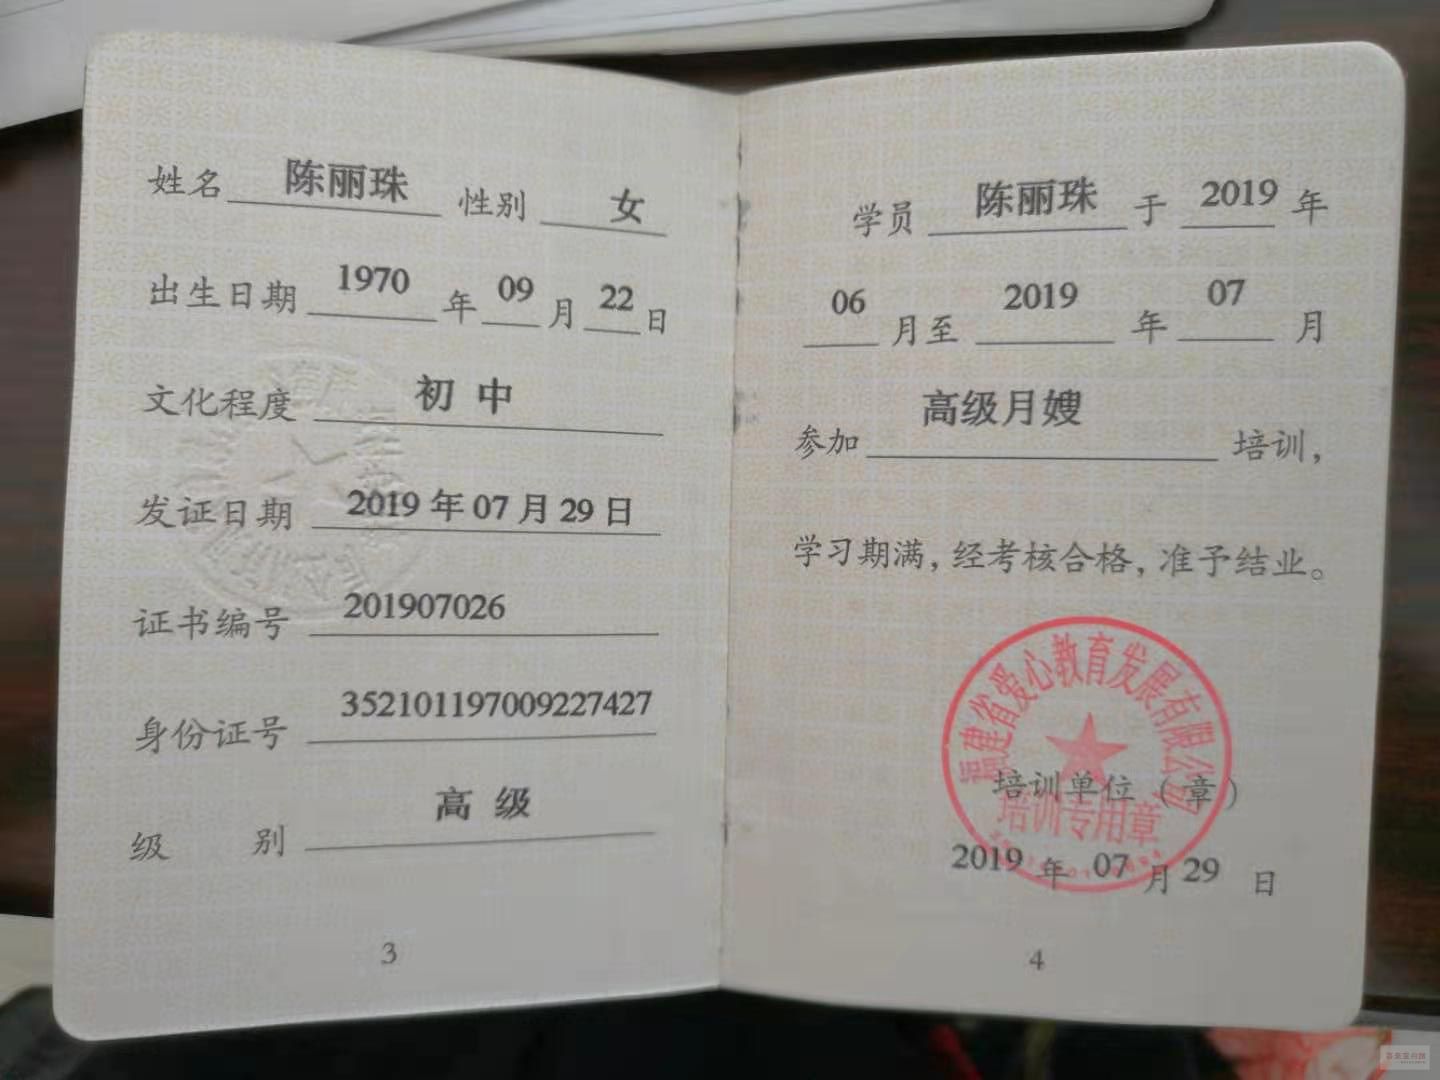 姓名 陈丽珠 性别 女
出生日期 1970 年 09 月 22 日
文化程度 初中
发证日期 2019 年 07 月 29 日
证书编号 201907026
身份证号 352101197009227427
级 别 高级
3
学员 陈丽珠 于 2019 年
06 月至 2019 年 07 月
参加 高级月嫂 培训，
学习期满，经考核合格，准予结业。
福建省爱心教育发展有限公司
培训单位（章）
培训专用章
2019 年 07 月 29 日
4